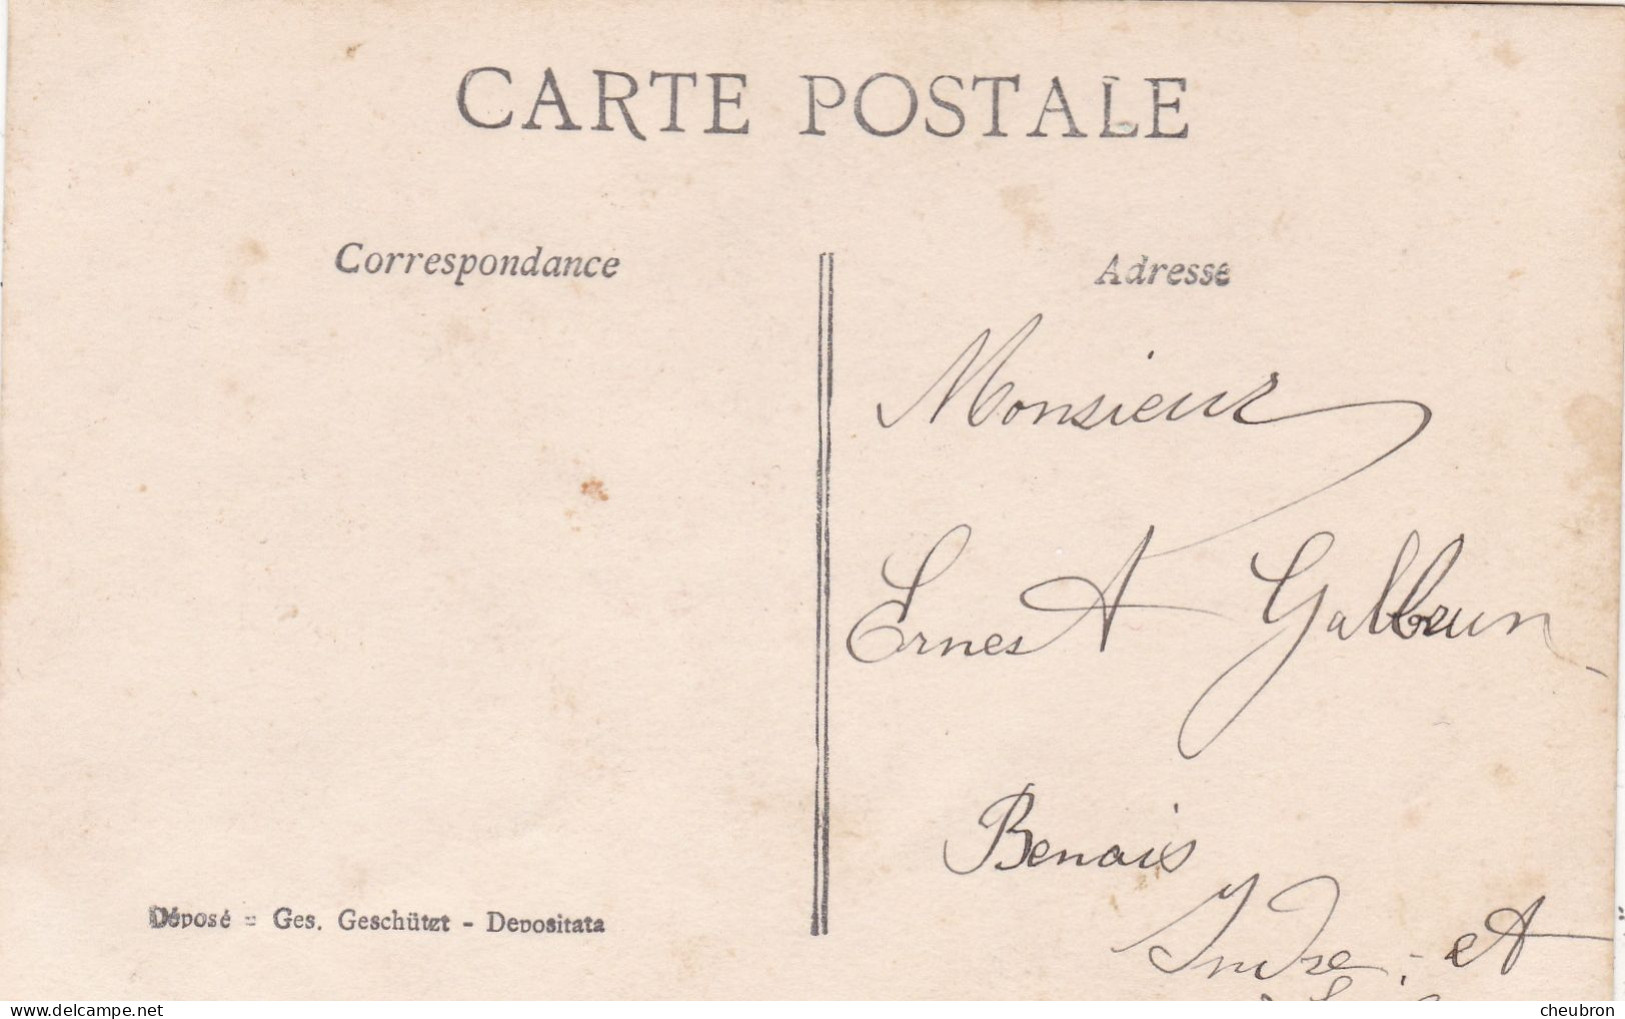 CARTE POSTALE
Correspondance
Adresse
Monsieur
Ernest Galbrun
Benais
Indre-et
Déposé - Ges. Geschützt - Depositata
cheubron